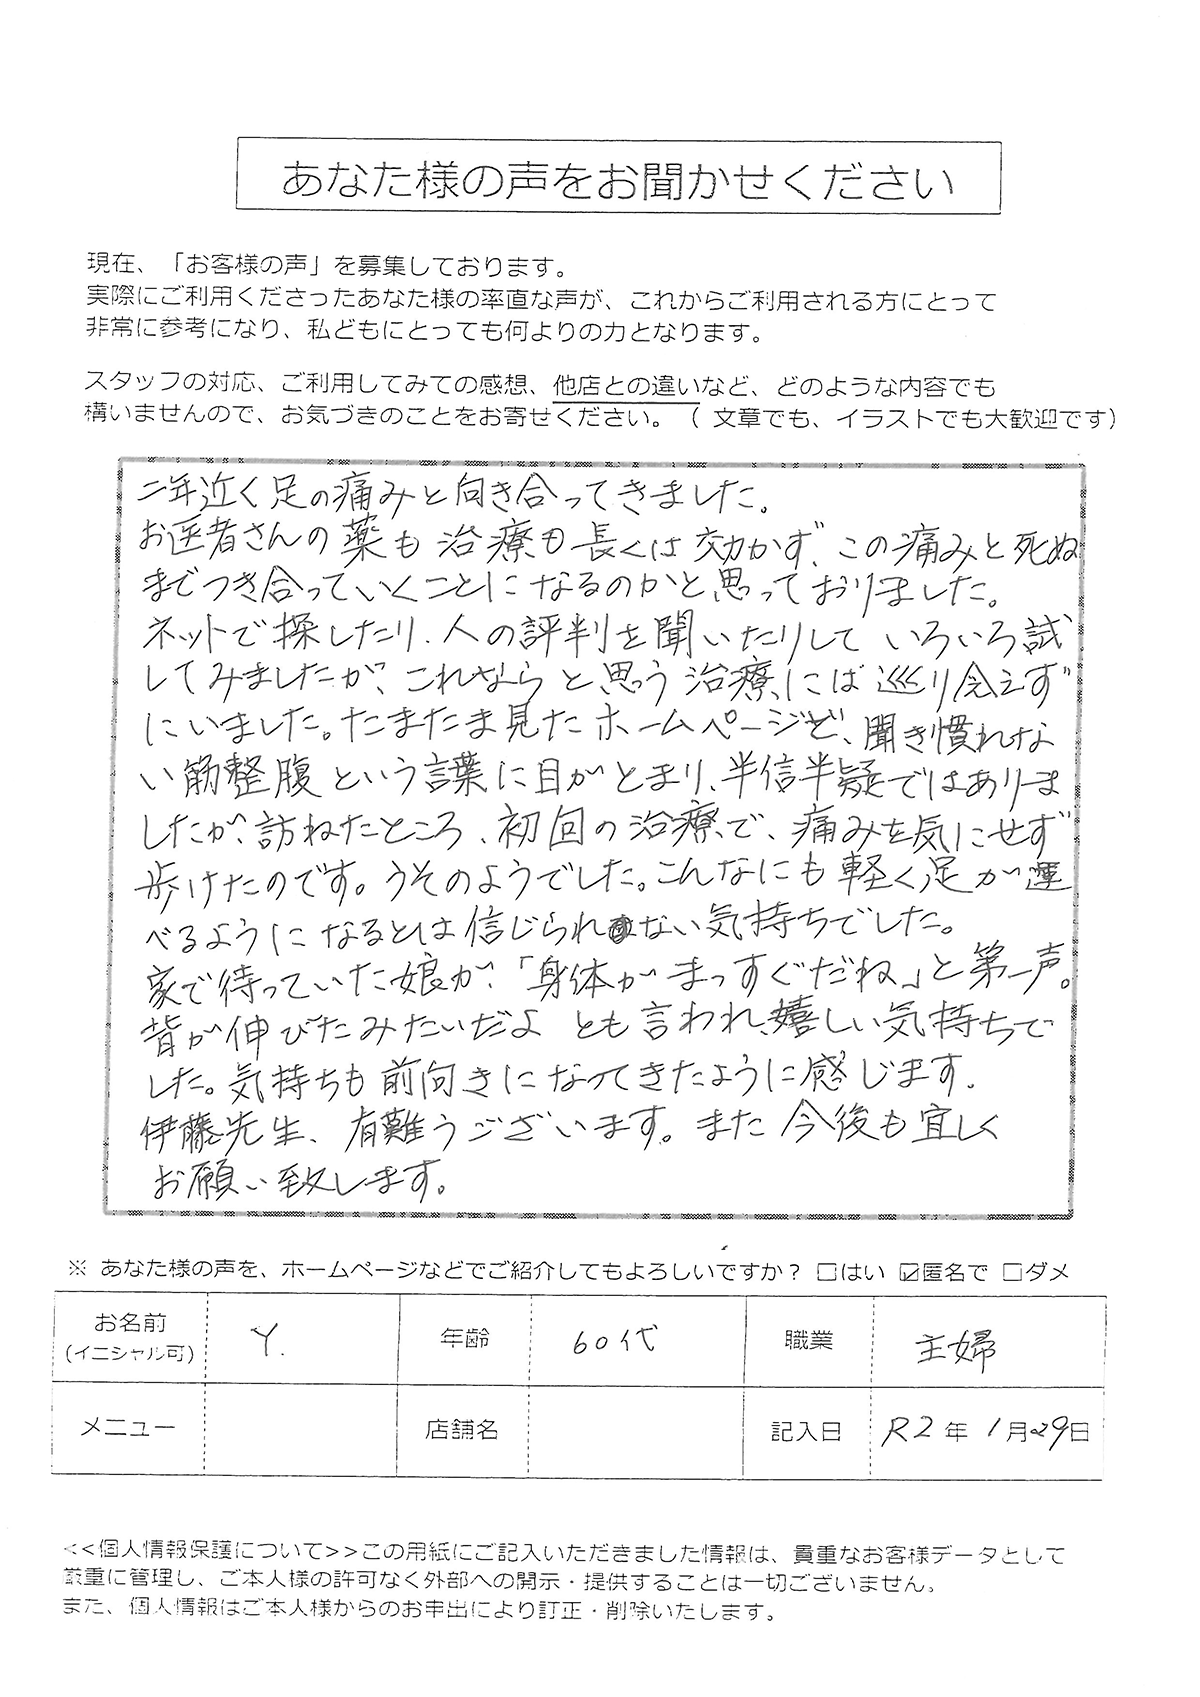 あなた様の声をお聞かせください
現在、「お客様の声」を募集しております。
実際にご利用くださったあなた様の率直な声が、これからご利用される方にとって
非常に参考になり、私どもにとっても何よりの力となります。
スタッフの対応、ご利用してみての感想、他店との違いなど、どのような内容でも
構いませんので、お気づきのことをお寄せください。（ 文章でも、イラストでも大歓迎です）
二年近く足の痛みと向き合ってきました。
お医者さんの薬も治療も長くは効かず、この痛みと死ぬ
までつき合っていくことになるのかと思っておりました。
ネットで探したり、人の評判を聞いたりしていろいろ試
してみましたが、これならと思う治療には巡り会えず
にいました。たまたま見たホームページで、聞き慣れな
い筋整腹という言葉に目がとまり、半信半疑ではありま
したが、訪ねたところ、初回の治療で、痛みを気にせず
歩けたのです。うそのようでした。こんなにも軽く足が運
べるようになるとは信じられない気持ちでした。
家で待っていた娘が、「身体がまっすぐだね」と第一声。
背が伸びたみたいだよとも言われ、嬉しい気持ちで
した。気持ちも前向きになってきたように感じます。
伊藤先生、有難うございます。また今後も宜しく
お願い致します。
※ あなた様の声を、ホームページなどでご紹介してもよろしいですか？ □はい ☑匿名で □ダメ
お名前 (イニシャル可) Y. 年齢 60代 職業 主婦
メニュー 店舗名 記入日 R2年 1月29日
<<個人情報保護について>>この用紙にご記入いただきました情報は、貴重なお客様データとして
厳重に管理し、ご本人様の許可なく外部への開示・提供することは一切ございません。
また、個人情報はご本人様からのお申出により訂正・削除いたします。